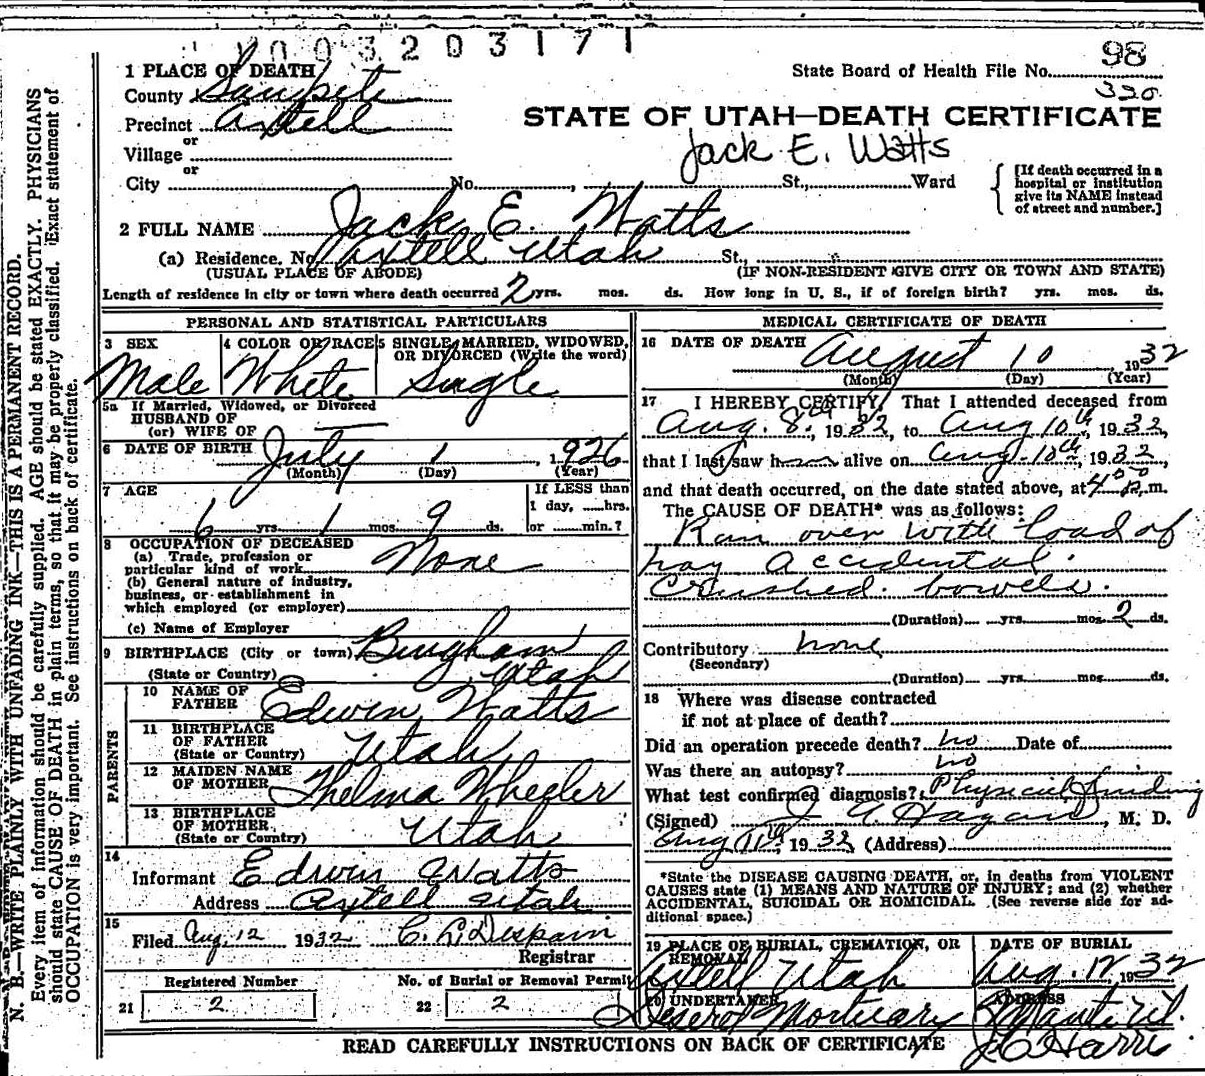 1003203171
98
State Board of Health File No.
320
1 PLACE OF DEATH
County Sanpete
STATE OF UTAH—DEATH CERTIFICATE
Precinct Axtell
or
Village
Jack E. Watts
or
City No. , St., Ward
[If death occurred in a
hospital or institution
give its NAME instead
of street and number.]
2 FULL NAME Jack E. Watts
(a) Residence. No. Axtell Utah St.,
(USUAL PLACE OF ABODE) (IF NON-RESIDENT GIVE CITY OR TOWN AND STATE)
Length of residence in city or town where death occurred 2 yrs. mos. ds. How long in U. S., if of foreign birth? yrs. mos. ds.
PERSONAL AND STATISTICAL PARTICULARS
3 SEX
Male
4 COLOR OR RACE
White
5 SINGLE, MARRIED, WIDOWED,
OR DIVORCED (Write the word)
Single
5a If Married, Widowed, or Divorced
HUSBAND OF
(or) WIFE OF
6 DATE OF BIRTH July 1, 1926
(Month) (Day) (Year)
7 AGE
6 yrs. 1 mos. 9 ds.
If LESS than
1 day, ......hrs.
or ......min.?
8 OCCUPATION OF DECEASED
(a) Trade, profession or
particular kind of work None
(b) General nature of industry,
business, or establishment in
which employed (or employer)
(c) Name of Employer
9 BIRTHPLACE (City or town) Bingham
(State or Country) Utah
PARENTS
10 NAME OF
FATHER Edwin Watts
11 BIRTHPLACE
OF FATHER
(State or Country) Utah
12 MAIDEN NAME
OF MOTHER Thelma Wheeler
13 BIRTHPLACE
OF MOTHER
(State or Country) Utah
14
Informant Edwin Watts
Address Axtell Utah
15
Filed Aug. 12 1932 C. L. Despain
Registrar
Registered Number
21 2
No. of Burial or Removal Permit
22 2
MEDICAL CERTIFICATE OF DEATH
16 DATE OF DEATH August 10 1932
(Month) (Day) (Year)
17 I HEREBY CERTIFY, That I attended deceased from
Aug. 8th, 1932, to Aug 10th, 1932,
that I last saw him alive on Aug. 10th, 1932,
and that death occurred, on the date stated above, at 4 00 P.m.
The CAUSE OF DEATH* was as follows:
Ran over with load of
hay accidental.
Crushed bowels.
(Duration) yrs. mos. 2 ds.
Contributory none
(Secondary)
(Duration) yrs. mos. ds.
18 Where was disease contracted
if not at place of death?
Did an operation precede death? no Date of
Was there an autopsy? no
What test confirmed diagnosis? Physical finding
(Signed) J. A. Hagan, M. D.
Aug 11th, 1932 (Address)
*State the DISEASE CAUSING DEATH, or, in deaths from VIOLENT
CAUSES state (1) MEANS AND NATURE OF INJURY; and (2) whether
ACCIDENTAL, SUICIDAL OR HOMICIDAL. (See reverse side for ad-
ditional space.)
19 PLACE OF BURIAL, CREMATION, OR
REMOVAL
Axtell Utah
DATE OF BURIAL
Aug. 12 1932
20 UNDERTAKER
Deseret Mortuary
ADDRESS
Manti
J C Harris
READ CAREFULLY INSTRUCTIONS ON BACK OF CERTIFICATE
N. B.—WRITE PLAINLY WITH UNFADING INK—THIS IS A PERMANENT RECORD.
Every item of information should be carefully supplied. AGE should be stated EXACTLY. PHYSICIANS
should state CAUSE OF DEATH in plain terms, so that it may be properly classified. Exact statement of
OCCUPATION is very important. See instructions on back of certificate.